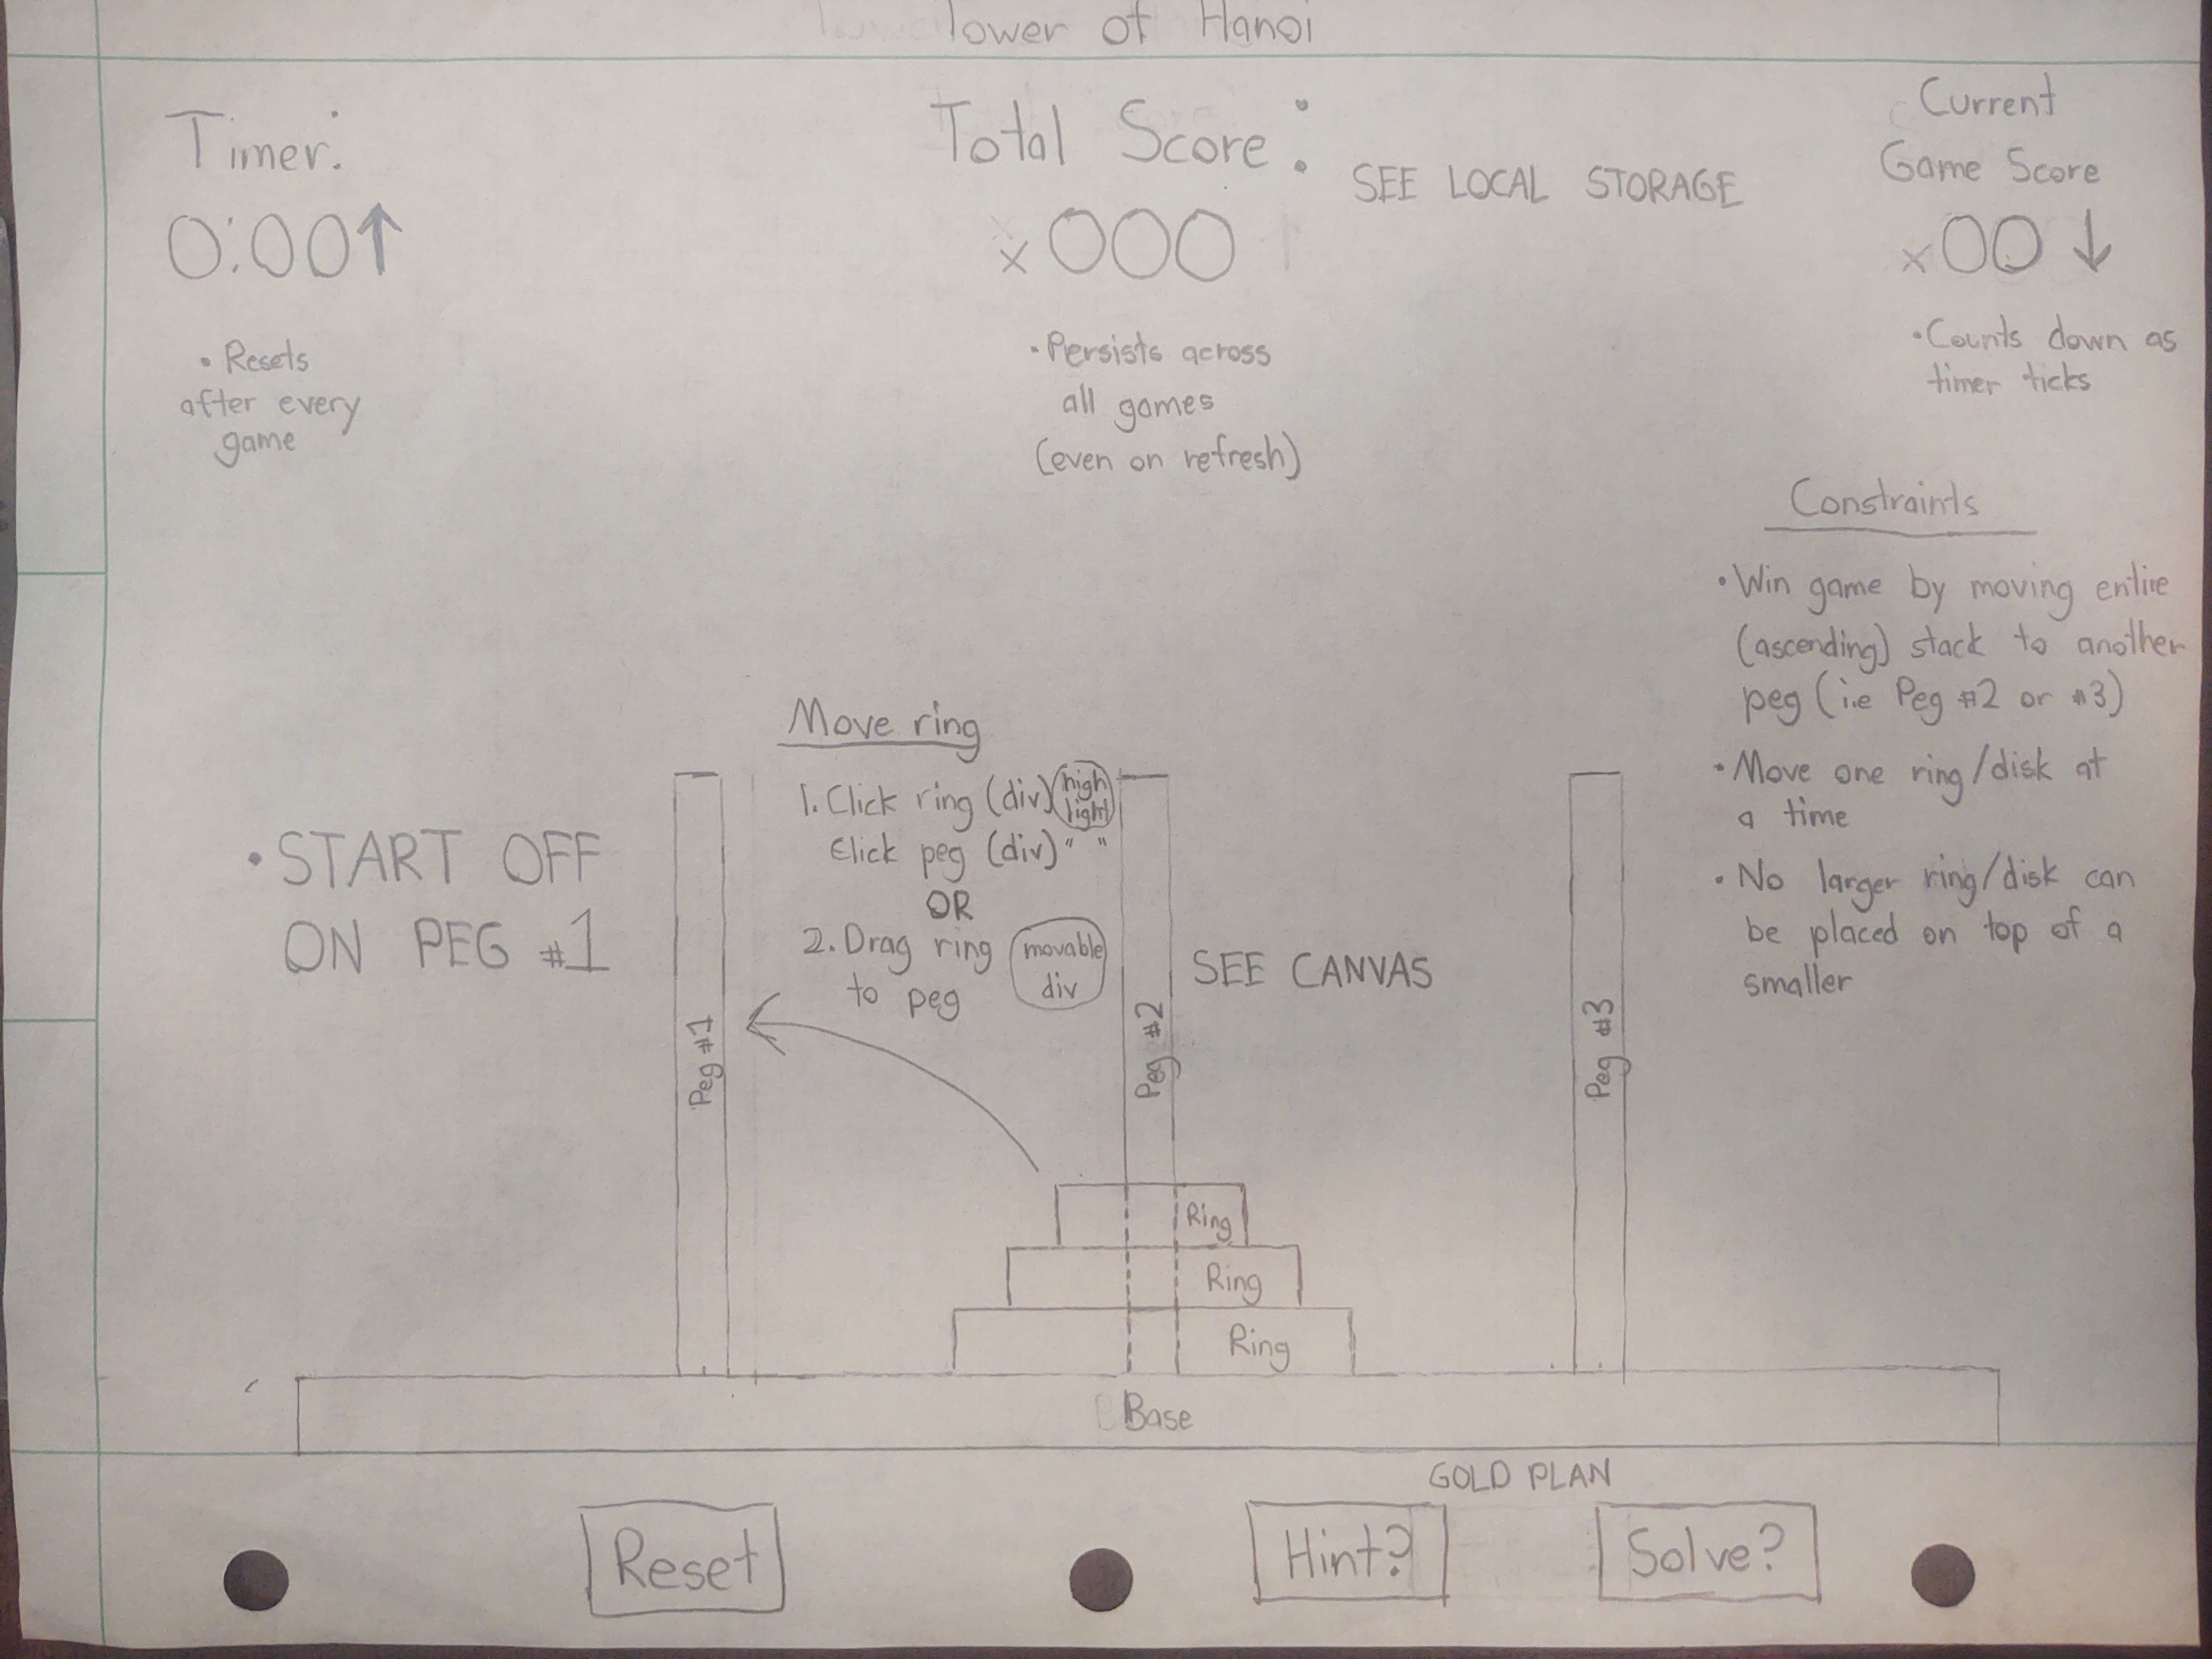 Tower of Hanoi
Timer:
0:00↑
• Resets
after every
game
Total Score:
SEE LOCAL STORAGE
x 000
• Persists across
all games
(even on refresh)
Current
Game Score
x 00 ↓
• Counts down as
timer ticks
Constraints
• Win game by moving entire
(ascending) stack to another
peg (i.e Peg #2 or #3)
• Move one ring/disk at
a time
• No larger ring/disk can
be placed on top of a
smaller
• START OFF
ON PEG #1
Move ring
1. Click ring (div) high
light
Click peg (div) " "
OR
2. Drag ring movable
to peg div
SEE CANVAS
Peg #1
Peg #2
Peg #3
Ring
Ring
Ring
Base
GOLD PLAN
Reset
Hint?
Solve?